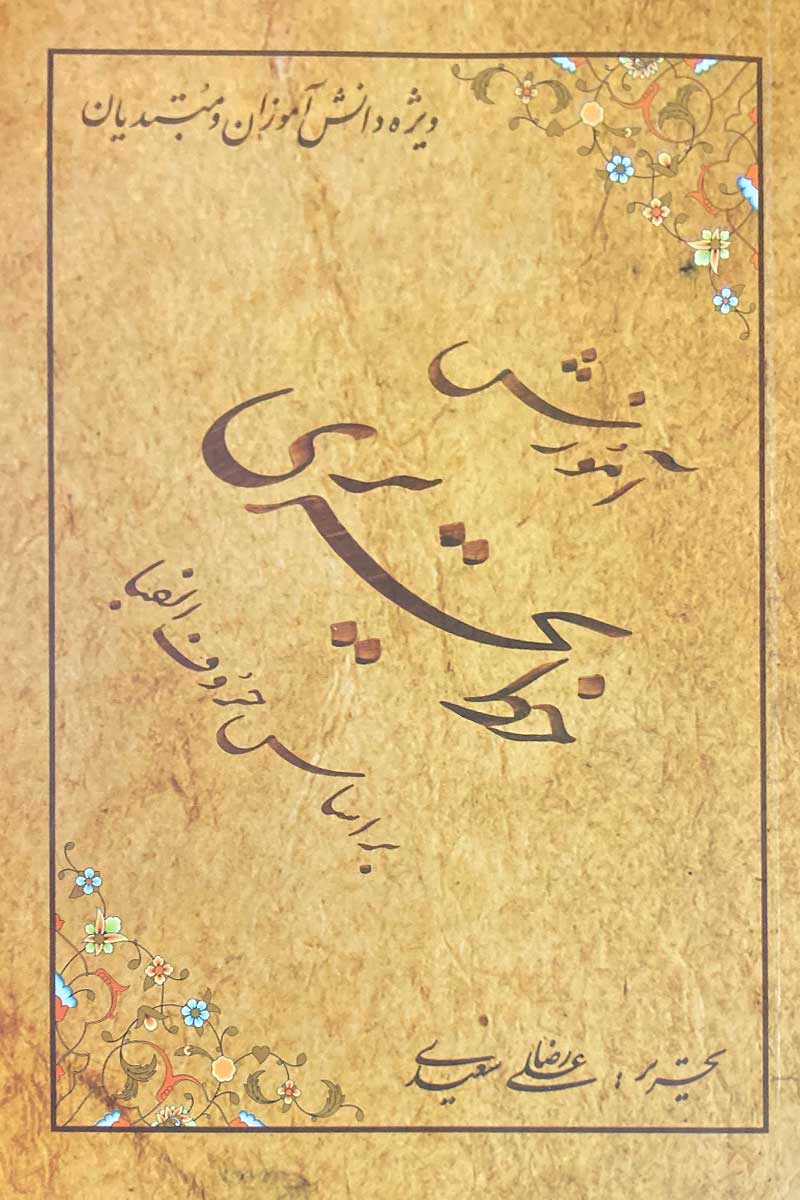 ویژه دانش آموزان و مبتدیان
آموزش
خط تحریری
بر اساس حروف الفبا
تحریر : علیرضا سعیدی